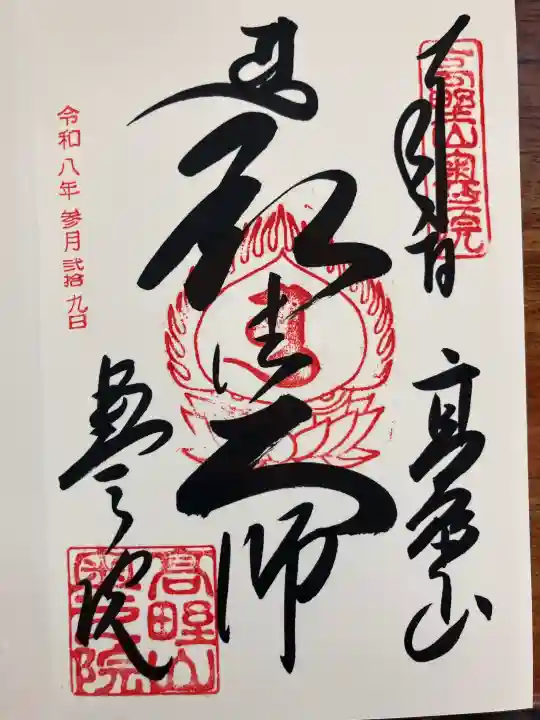 高野山奥之院
高野山
弘法大師
奥之院
高野山
奥之院
令和八年 参月 弐拾 九日